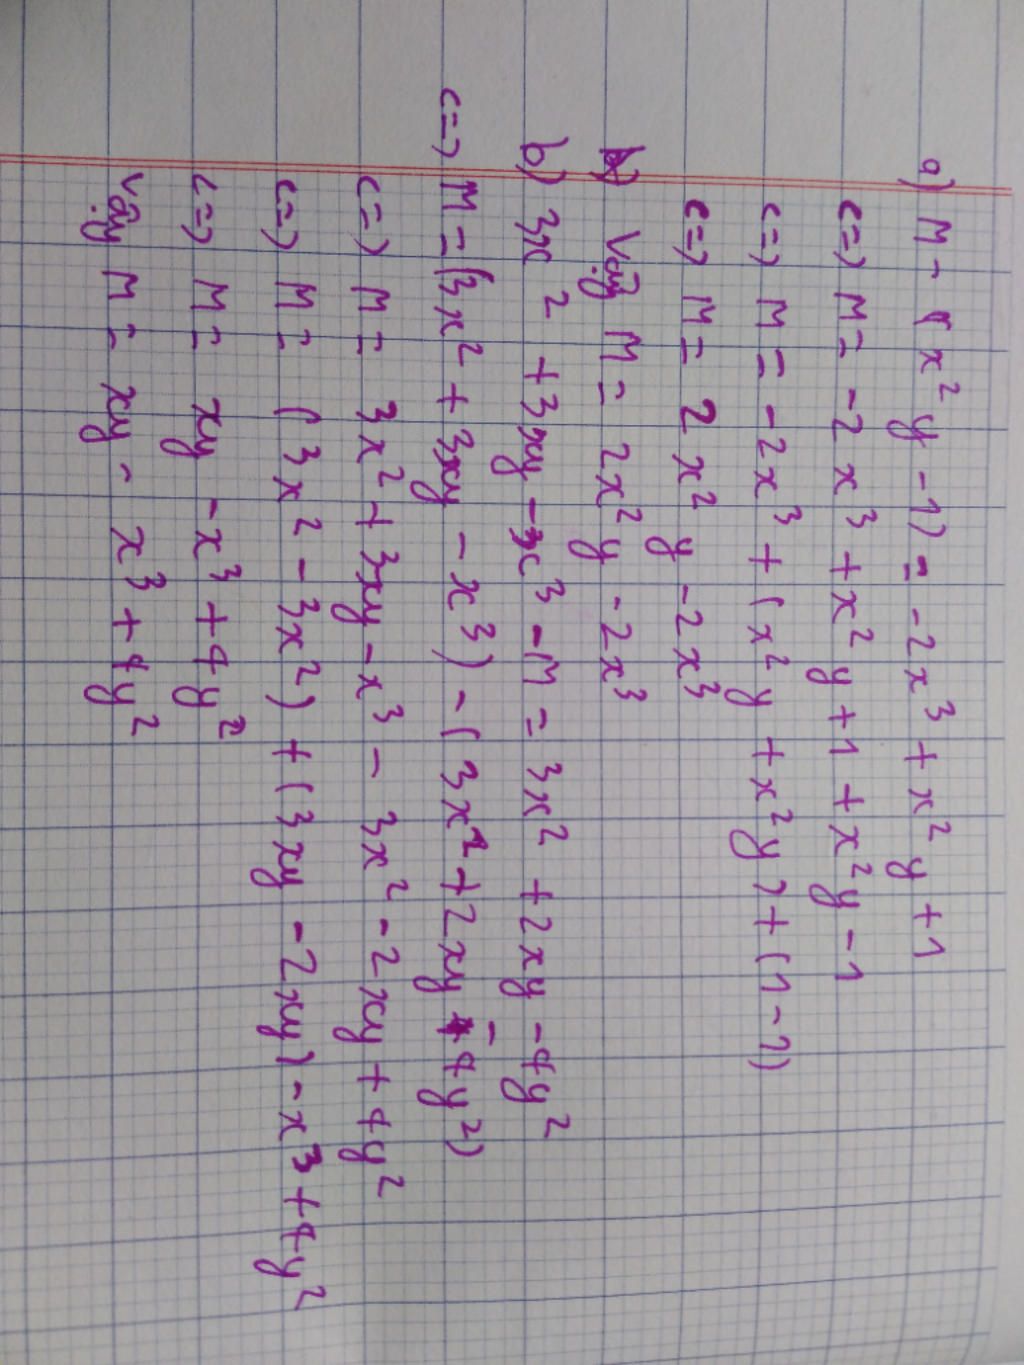 a) M - (x² y - 1) = -2x³ + x² y + 1
<=> M = -2x³ + x² y + 1 + x² y - 1
<=> M = -2x³ + (x² y + x² y) + (1 - 1)
<=> M = 2x² y - 2x³
Vậy M = 2x² y - 2x³
b) 3x² + 3xy - x³ - M = 3x² + 2xy - 4y²
<=> M = (3x² + 3xy - x³) - (3x² + 2xy - 4y²)
<=> M = 3x² + 3xy - x³ - 3x² - 2xy + 4y²
<=> M = (3x² - 3x²) + (3xy - 2xy) - x³ + 4y²
<=> M = xy - x³ + 4y²
Vậy M = xy - x³ + 4y²